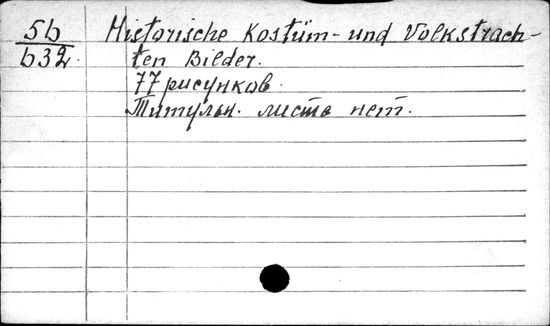 5б Historische Kostüm- und Volkstrach-
б32 ten Bilder.
77 рисунков.
Титульн. листа нет.